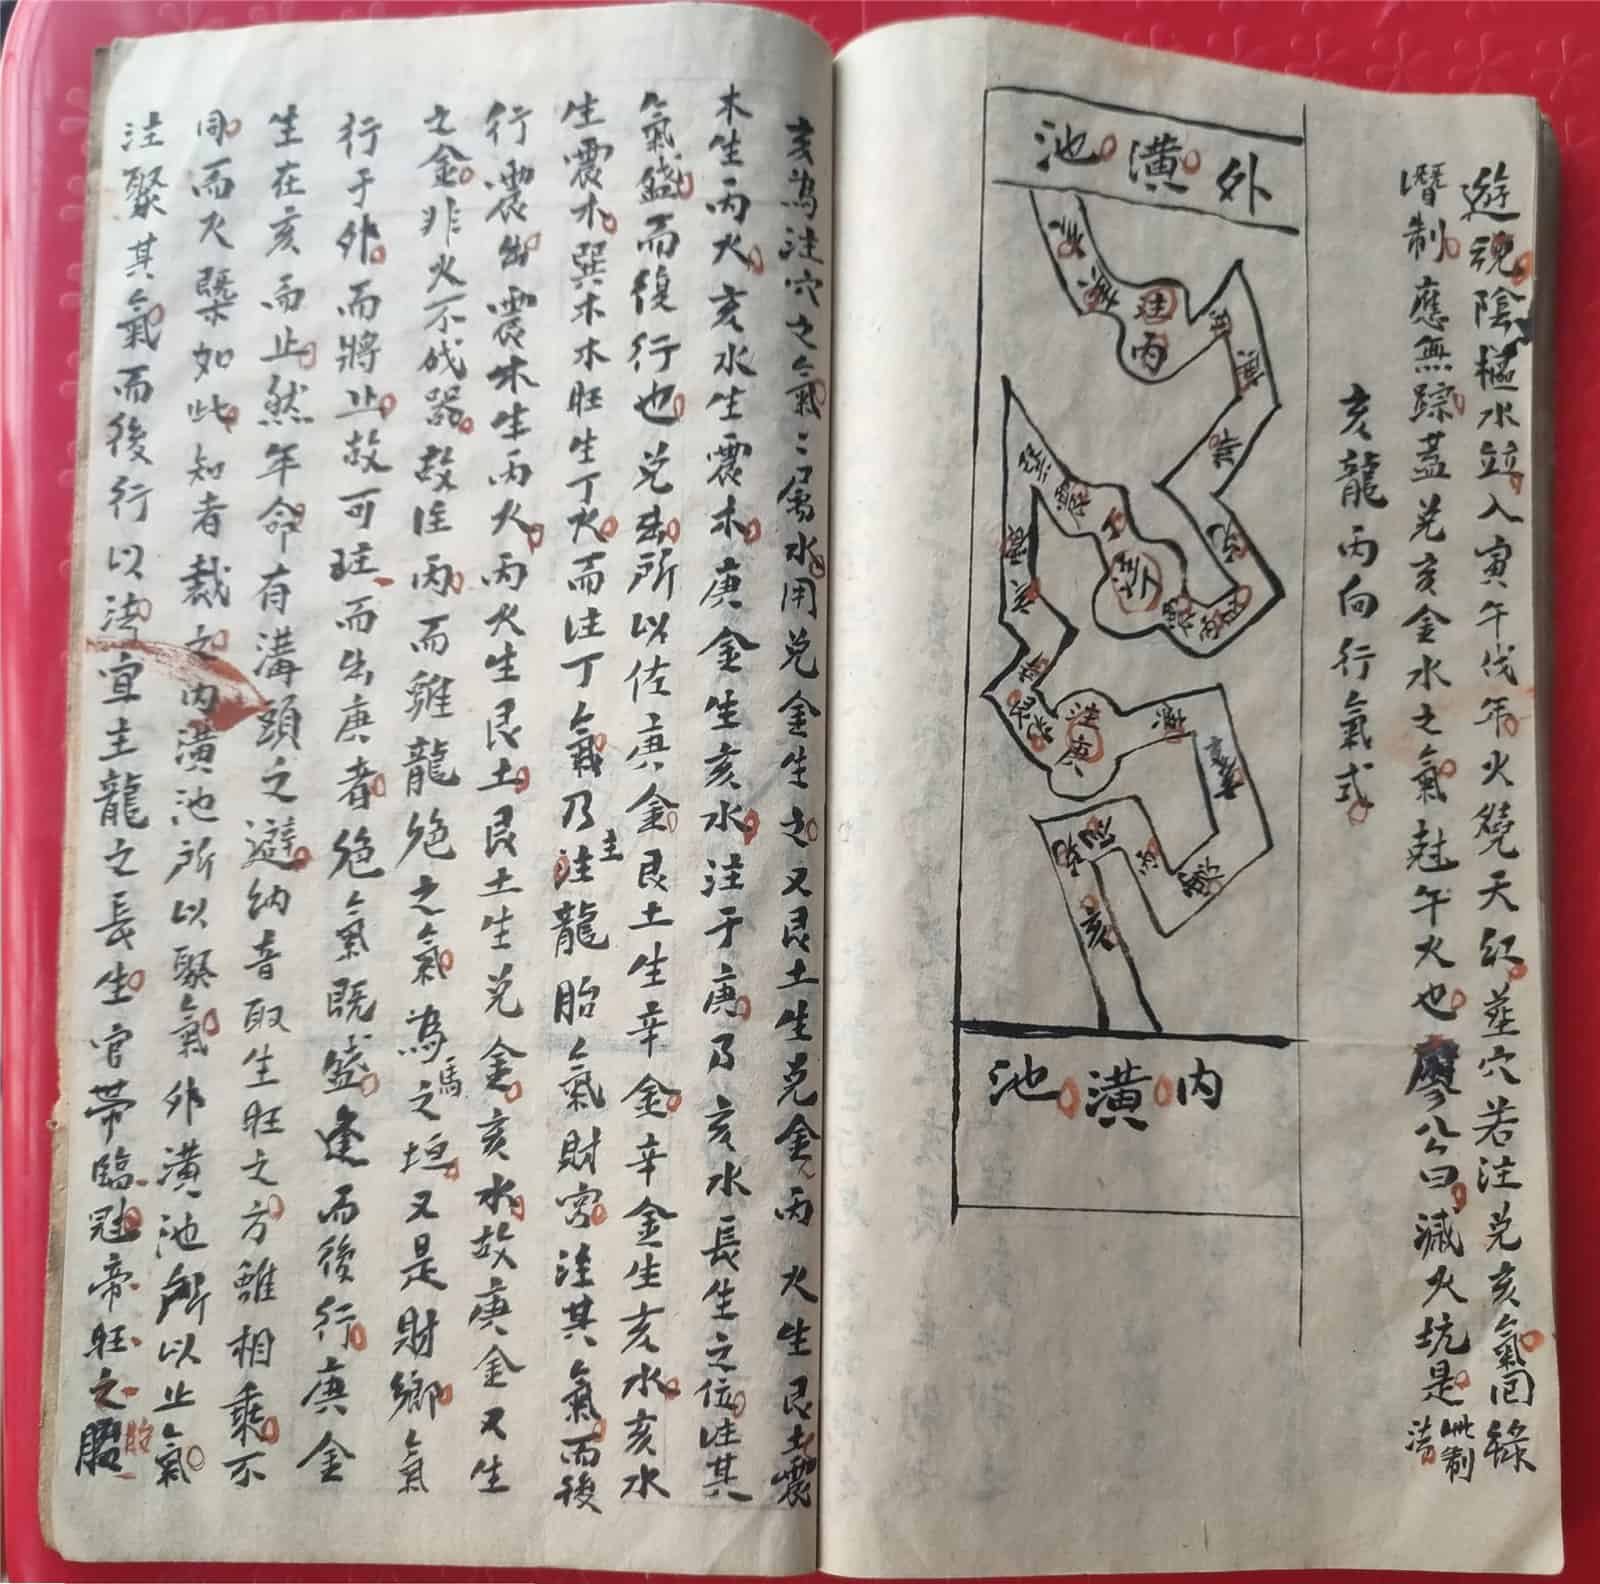 遊魂陰樞水竝入寅午戌年火燒天紅塟穴若注兌亥氣囘祿
潛制應無踪蓋兌亥金水之氣尅午火也廖公曰滅火坑是此制法
亥龍丙向行氣式
外潢池
注丙
注丁
注庚
亥
內潢池
亥為注穴之氣氣屬水用兌金生之又艮土生兌金丙火生艮土震
木生丙火亥水生震木庚金生亥水注于庚乃亥水長生之位注其
氣盛而復行也兌出所以佐庚金艮土生辛金辛金生亥水亥水
生震木巽木木旺生丁火而注丁氣乃注主龍胎氣財宮注其氣而後
行震出震木生丙火丙火生艮土艮土生兌金亥水故庚金又生
之金非火不成器故注丙而雖龍絶之氣為馬之垣又是財鄉氣
行于外而將止故可注而出庚者絶氣氣既盛逢而後行庚金
生在亥而止然年命有溝頭之避納音取生旺之方雖相乘不
同而大槩如此知者裁之內潢池所以聚氣外潢池所以止氣
注聚其氣而後行以溝宜主龍之長生官帶臨冠帝旺之胎